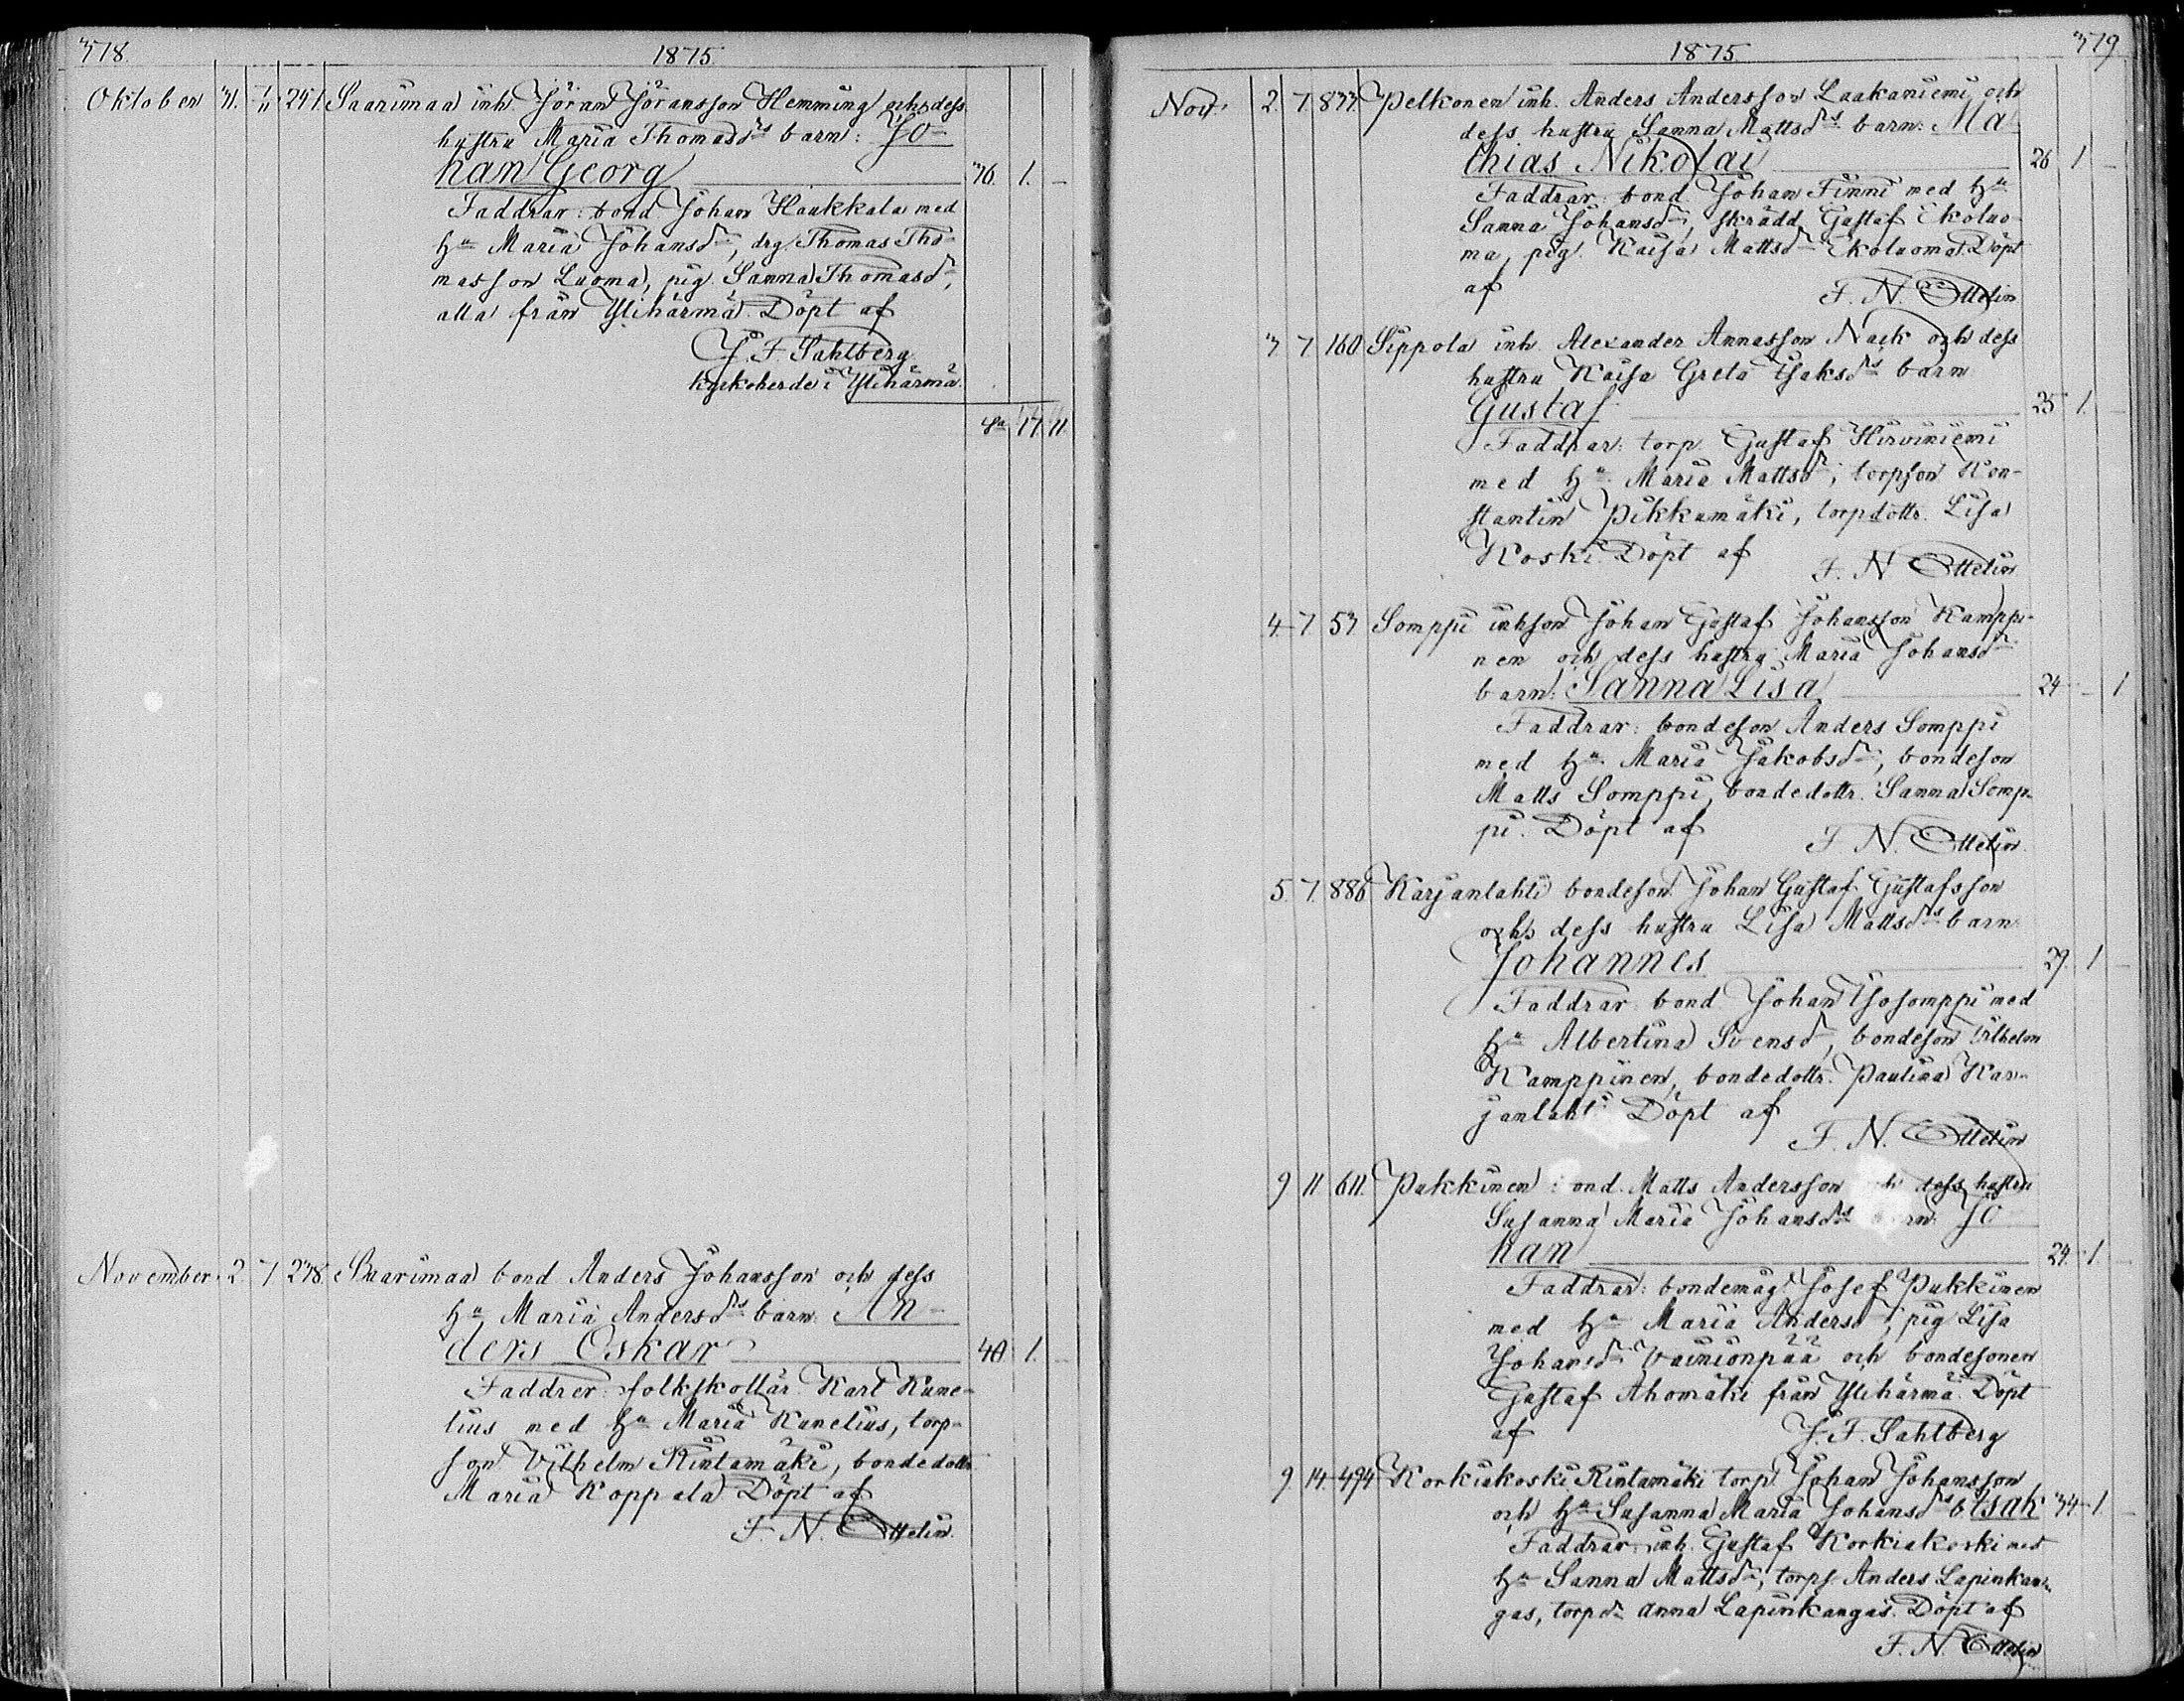 378.
1875.
Oktober 31. 7/11 241. Saarimaa inh. Jöran Jöransson Hemming och dess
hustru Maria Thomasdrs barn: Jo-
han Georg 36. 1. -
Faddrar: bond Johan Haukkala med
hu Maria Johansdr, drg. Thomas Tho-
masson Luoma, pig. Sanna Thomasdr,
alla från Ylihärmä. Döpt af
J. F. Sahlberg
kyrkoherde i Ylihärmä.
Sa 17. 11.
November 2. 7 238. Saarimaa bond Anders Johansson och dess
hu Maria Andersdrs barn: An-
ders Oskar 40. 1. -
Faddrer: folkskollär. Karl Kune-
lius med hu Maria Kunelius, torp-
son Vilhelm Rintamäki, bondedottr.
Maria Koppala. Döpt af
F. N. Ottelin.
1875.
379
Nov. 2. 7. 833. Pelkonen inh. Anders Andersson Laakaniemi och
dess hustru Sanna Mattsdrs barn: Ma-
thias Nikolai 26 1 -
Faddrar: bond Johan Finni med hu
Sanna Johansdr, skrädd. Gustaf Ekoluo-
ma, pig. Kaisa Mattsdr Ekoluoma. Döpt
af F. N. Ottelin
3 7. 160. Sippola inh. Alexander Annasson Nack och dess
hustru Kaisa Greta Isaksdrs barn
Gustaf 25 1. -
Faddrar: torp. Gustaf Hirviniemi
med hu Maria Mattsdr, torpson Kon-
stantin Pikkumäki, torpdottr. Lisa
Koski. Döpt af F. N Ottelin
4. 7. 53 Somppi inhson Johan Gustaf Johansson Kamppi-
nen och dess hustru Maria Johansdr
barn: Sanna Lisa 24 - 1
Faddrar: bondeson Anders Somppi
med hu Maria Jakobsdr, bondeson
Matts Somppi, bondedottr. Sanna Somp-
pi. Döpt af F. N. Ottelin
5. 7. 886 Karjanlahti bondeson Johan Gustaf Gustafsson
och dess hustru Lisa Mattsdrs barn
Johannes 29. 1 -
Faddrar: bond Johan Isosomppi med
hu Albertina Svensdr, bondeson Vilhelm
Kamppinen, bondedottr. Paulina Kar-
janlahti Döpt af
F. N. Ottelin
9 11 611. Pukkinen ond. Matts Andersson dess hustru
Susanna Maria Johansdrs barn: Jo-
han 24. 1. -
Faddrar: bondemåg. Josef Pukkinen
med hu Maria Andersdr, pig Lisa
Johansdr Vainionpää och bondesonen
Gustaf Ahomäki från Ylihärmä. Döpt
af J. F. Sahlberg
9. 14. 494 Korkiakoski Rintamäki torp. Johan Johansson
och hu Susanna Maria Johansdrs b. Isak 34. 1. -
Faddrar: inh. Gustaf Korkiakoski med
hu Sanna Mattsdr, torps. Anders Lapinkan-
gas, torpdr Anna Lapinkangas. Döpt af
F. N. Ottelin